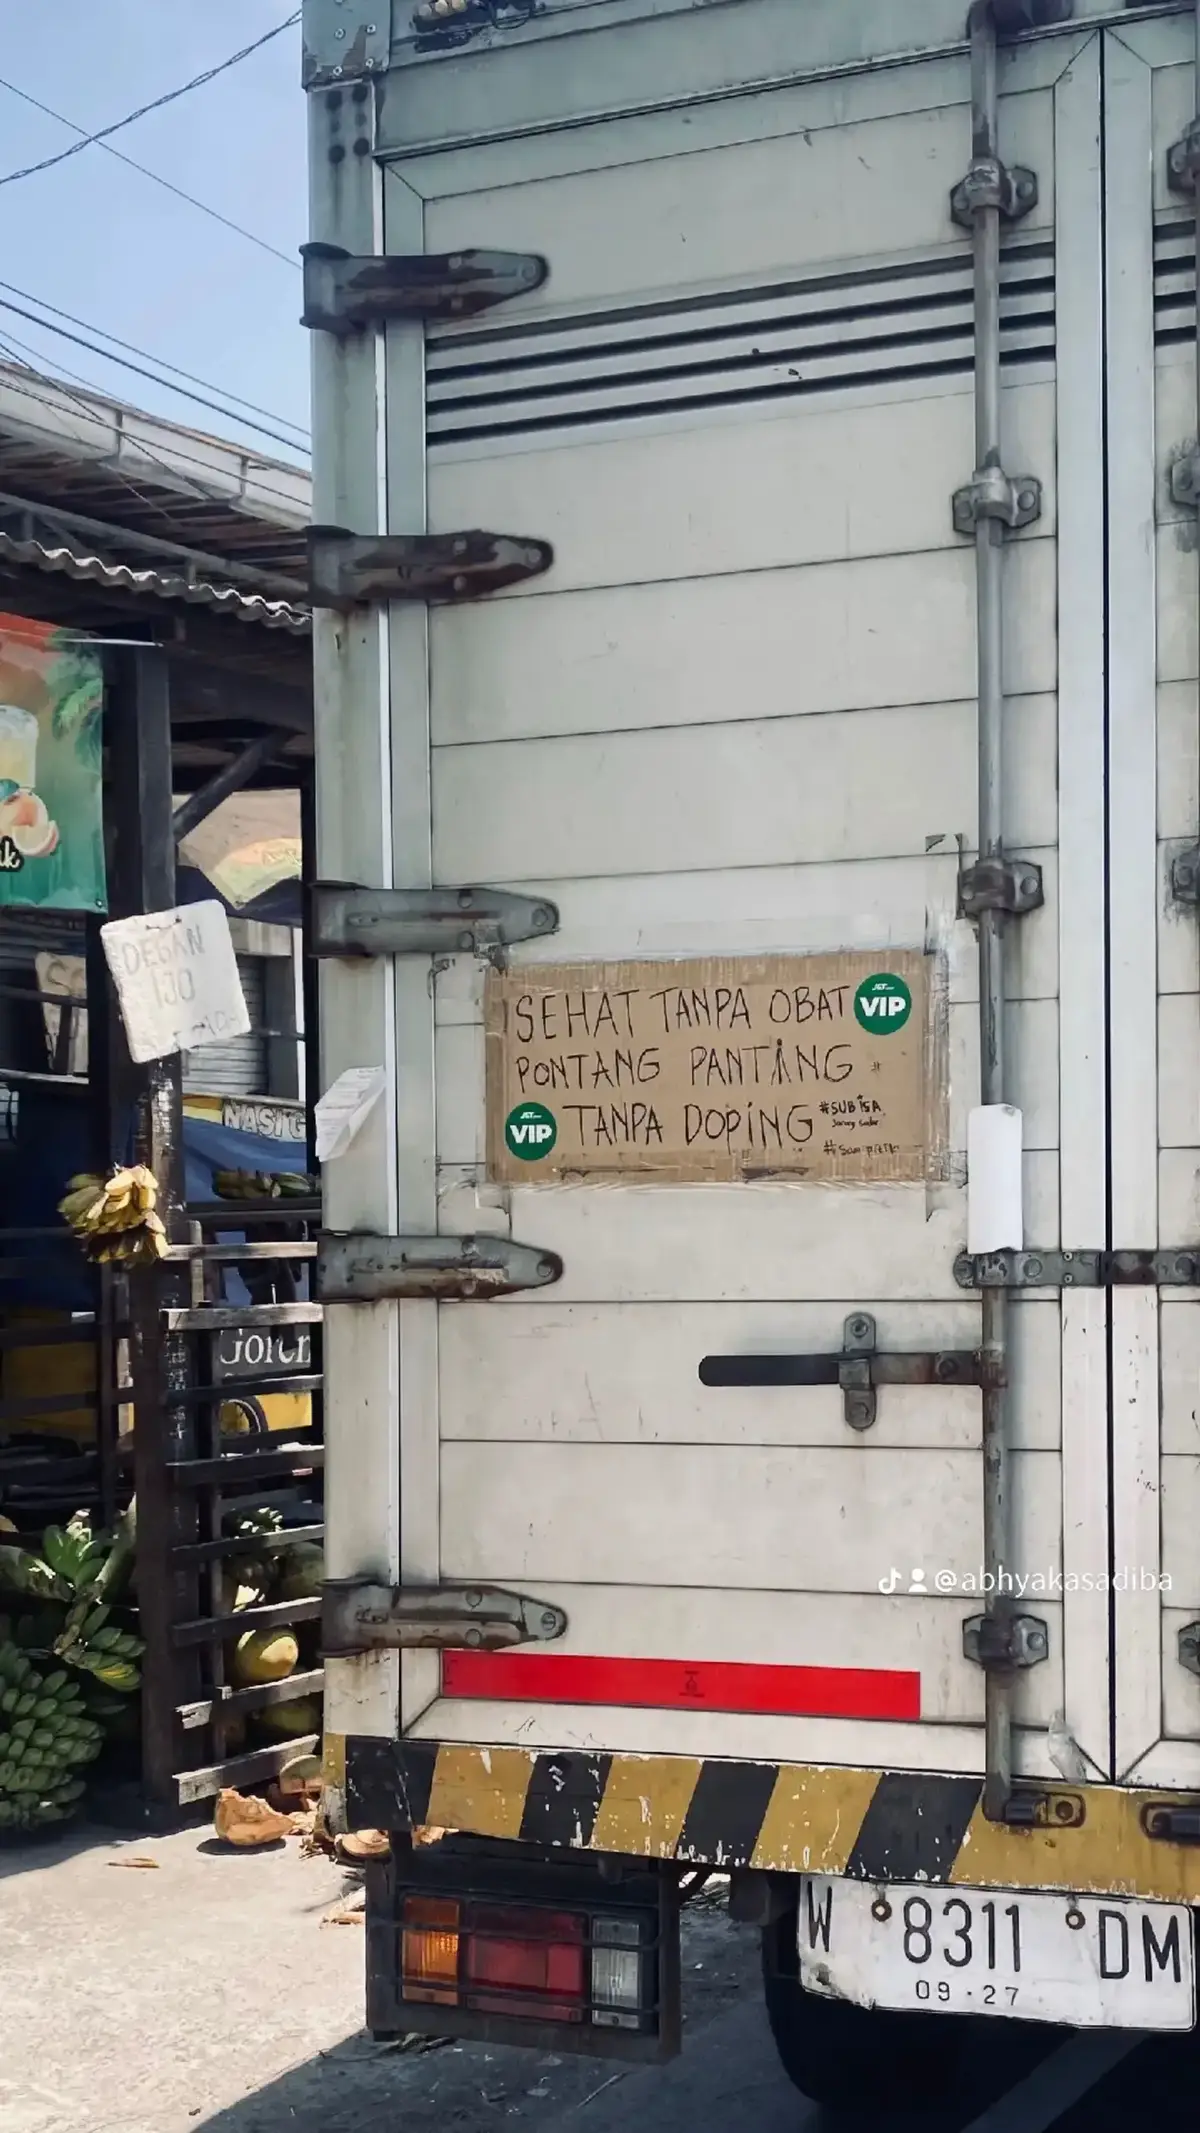 DEGAN
IJO
NASI G
Goren
SEHAT TANPA OBAT
JET
VIP
PONTANG PANTING
JET
VIP
TANPA DOPING
#SUBISA
@abhyakasadiba
W 8311 DM
09 · 27